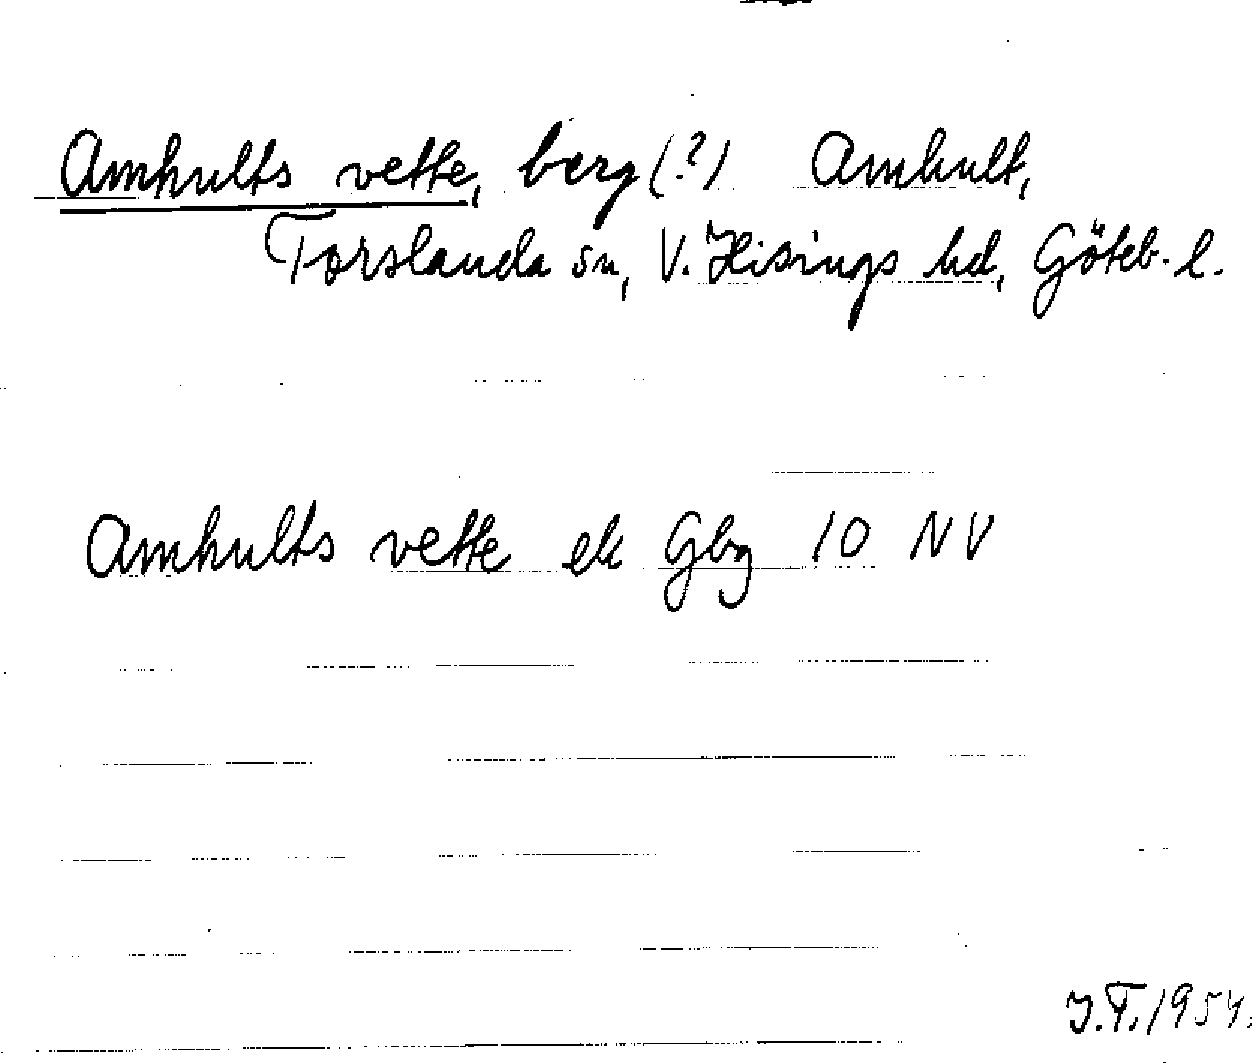 Amhults vette, berg (?) Amhult,
Torslanda sn, V. Hisings hd, Göteb. l.
Amhults vette ek Gbg 10 NV
J.T. 1954.